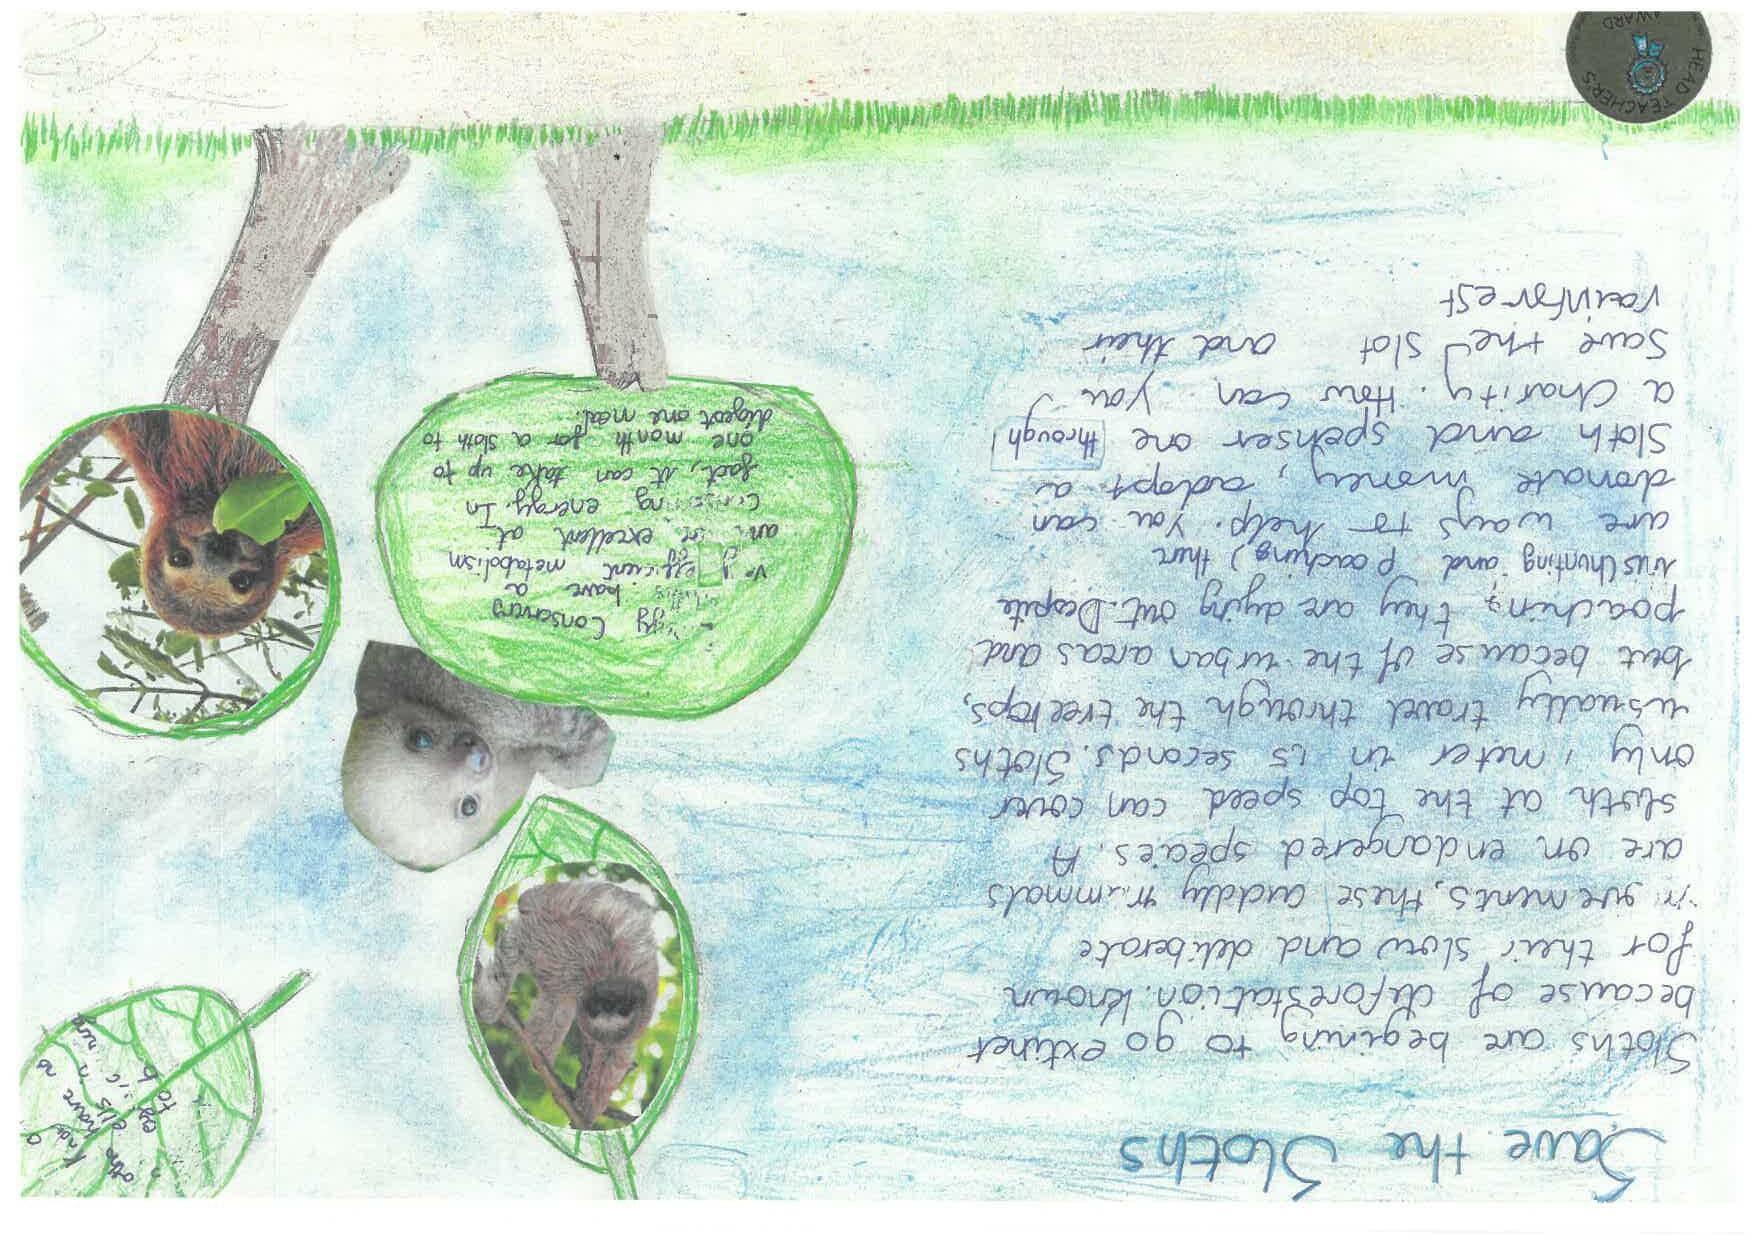 Save the Sloths
Sloths are begining to go extinct
because of deforestation. known
for their slow and deliberate
these cuddly mammals
are on endangered species. A
sloth at the top speed can cover
only 1 meter in 15 seconds. Sloths
usually travel through the treetops,
but because of the urban areas and
poaching they are dying out. Despite
this (hunting and poaching) ther
are ways to help. You can
donate money, adopt a
Sloth and spenser one through
a charity. How can you
save the slot and their
rainforest
Conservers
have a
efficient metabolism
excellent at
energy. In
fact, it can take up to
one month for a sloth to
digest one meal.
have no
to
HEAD TEACHER'S
AWARD